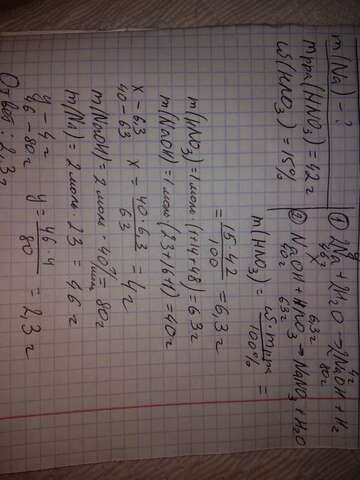 m(Na) - ?
mрра(HNO₃) = 42 г
ω(HNO₃) = 15%
① Na + H₂O → NaOH + H₂
y 4г
46г 80г
② NaOH + HNO₃ → NaNO₃ + H₂O
x 6,3г
40г 63г
m(HNO₃) = ω · mрра / 100% =
= 15 · 42 / 100 = 6,3 г
m(HNO₃) = 1 моль (1+14+48) = 63 г
m(NaOH) = 1 моль (23+16+1) = 40 г
x - 6,3
40 - 63
x - 40 · 6,3 / 63 = 4 г
m(NaOH) = 2 моль · 40 г/моль = 80 г
m(Na) = 2 моль · 23 = 46 г
y - 4 г
46 - 80 г
y = 46 · 4 / 80 = 2,3 г
Ответ: 2,3 г